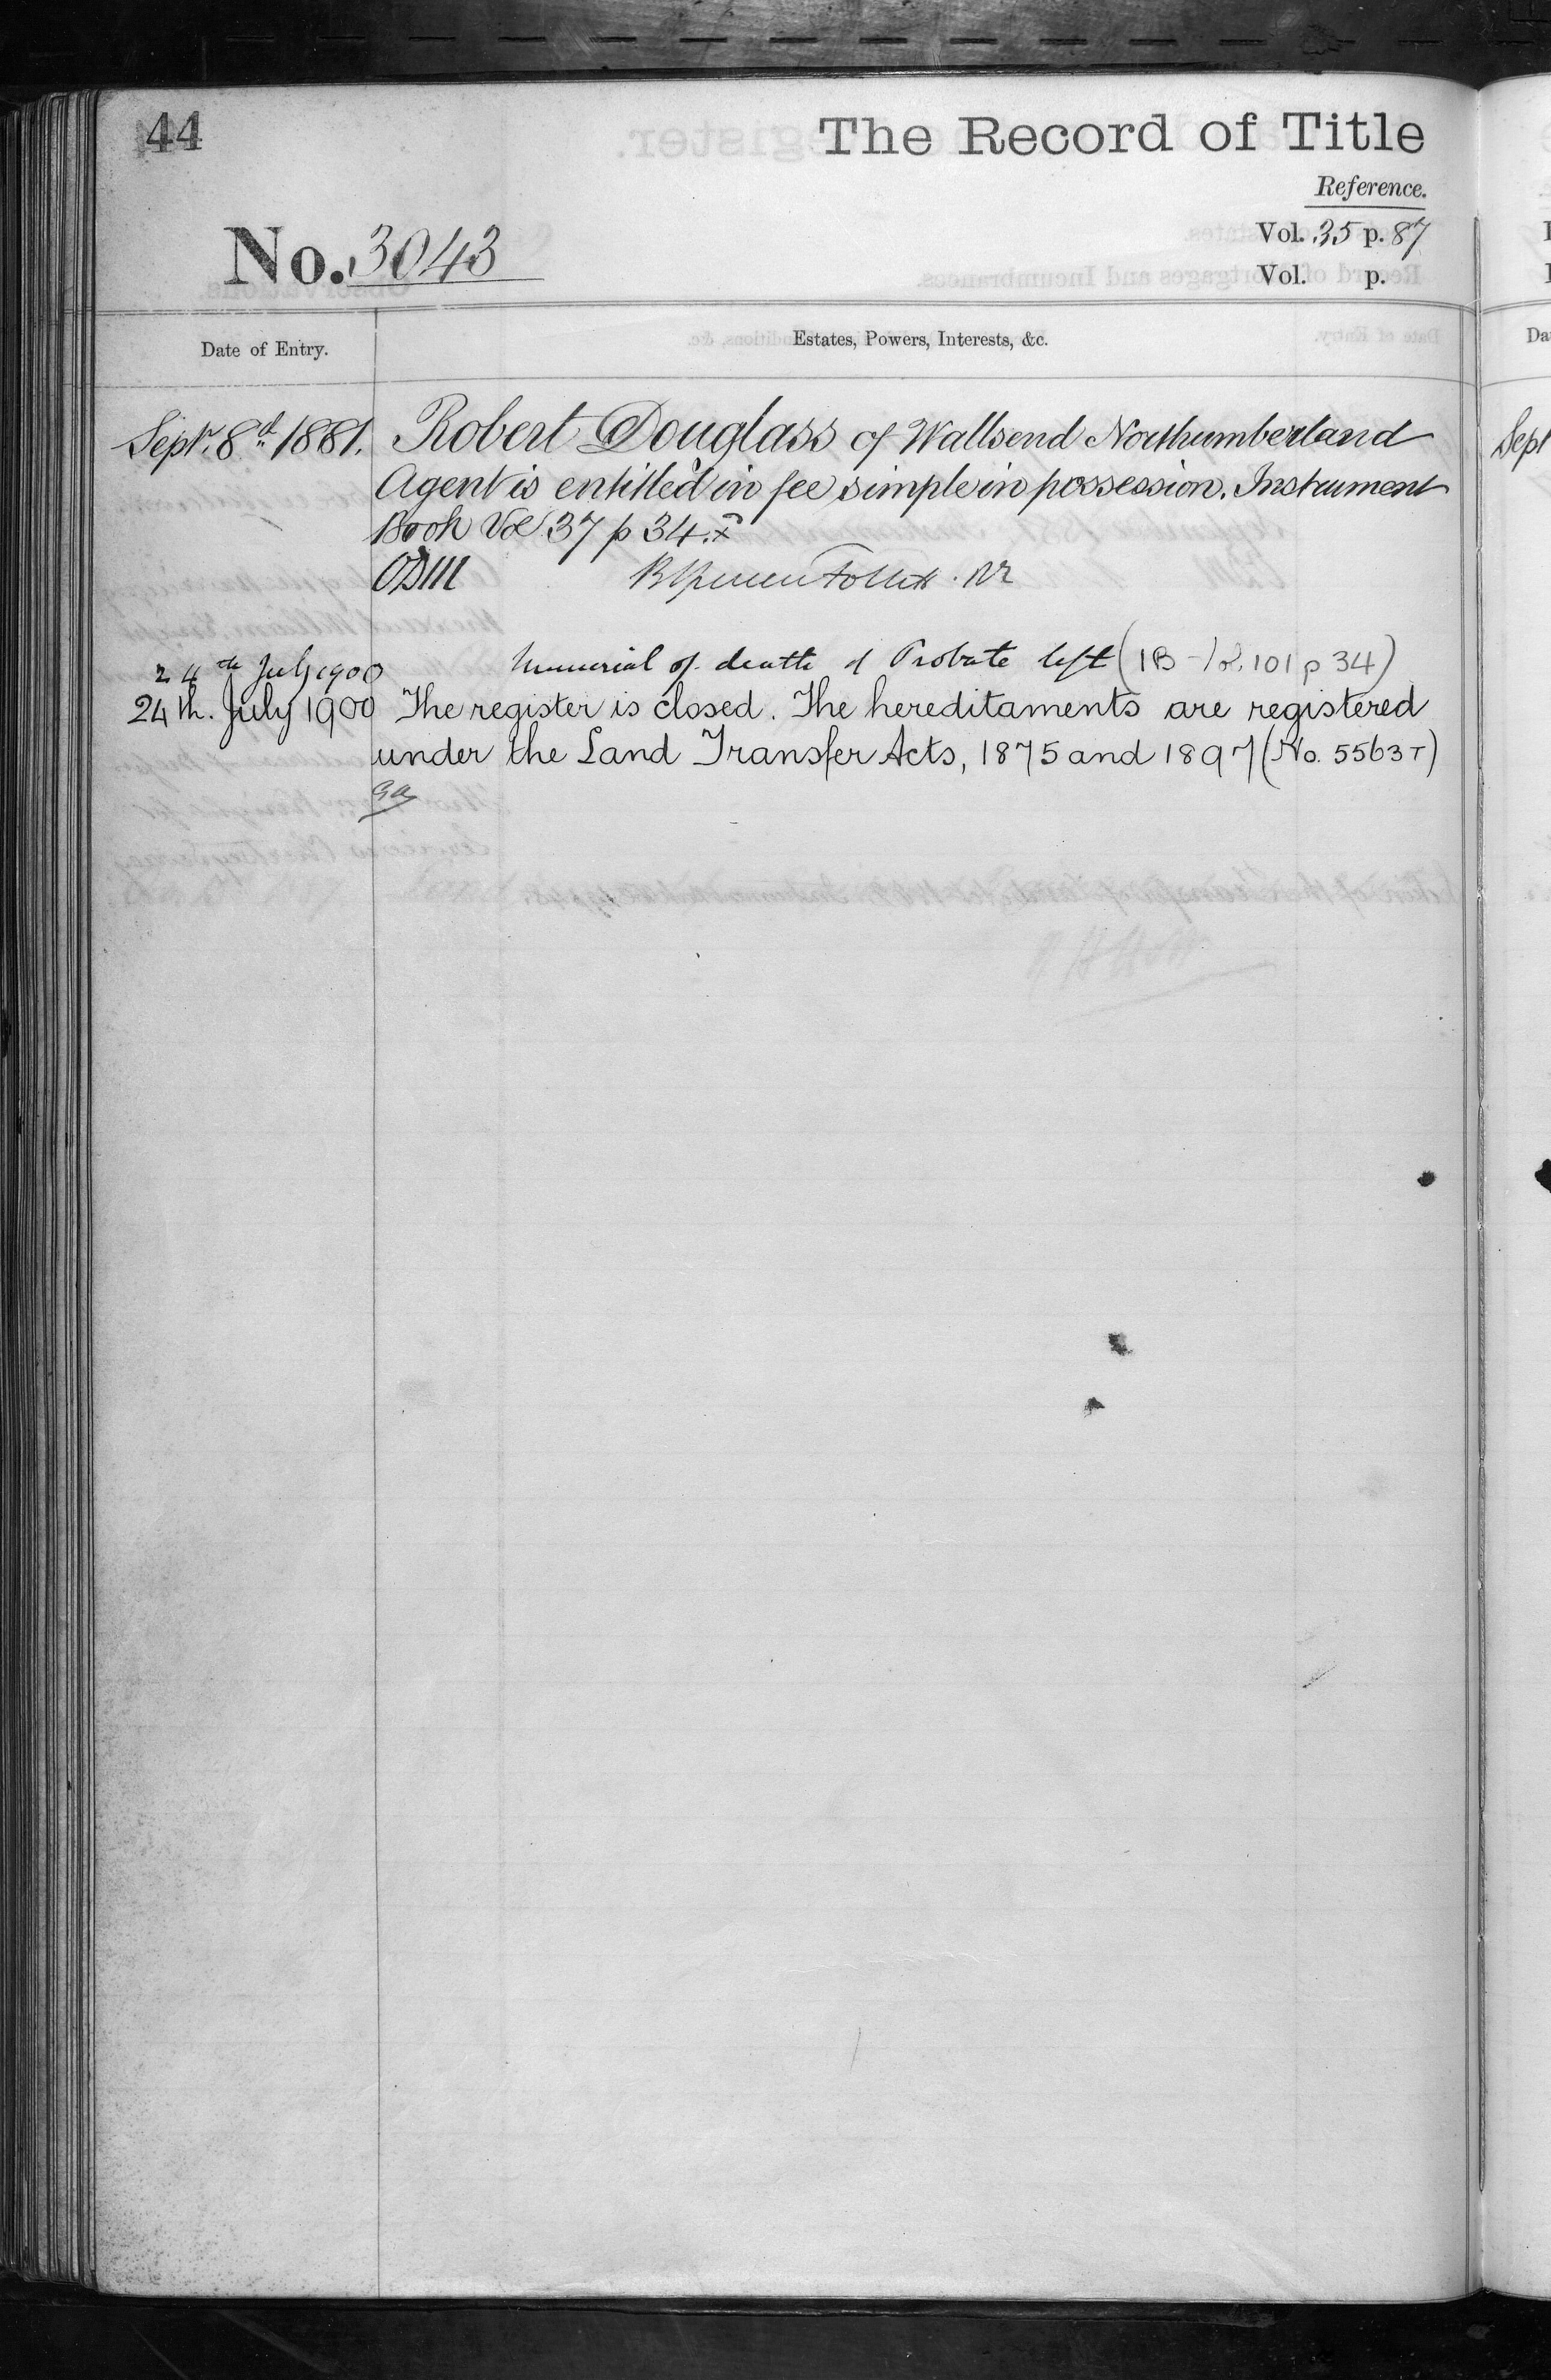 44
The Record of Title
Reference.
No. 3043
Vol. 35 p. 87
Vol. p.
Date of Entry.
Estates, Powers, Interests, &c.
Sept. 8th 1881. Robert Douglass of Wallsend Northumberland
Agent is entitled in fee simple in possession. Instrument
Book Vol 37 p 34. x
24th July 1900 Memorial of death & Probate left (IB Vol. 101 p 34)
24th. July 1900 The register is closed. The hereditaments are registered
under the Land Transfer Acts, 1875 and 1897 (No. 5563 T)
Da
Sept